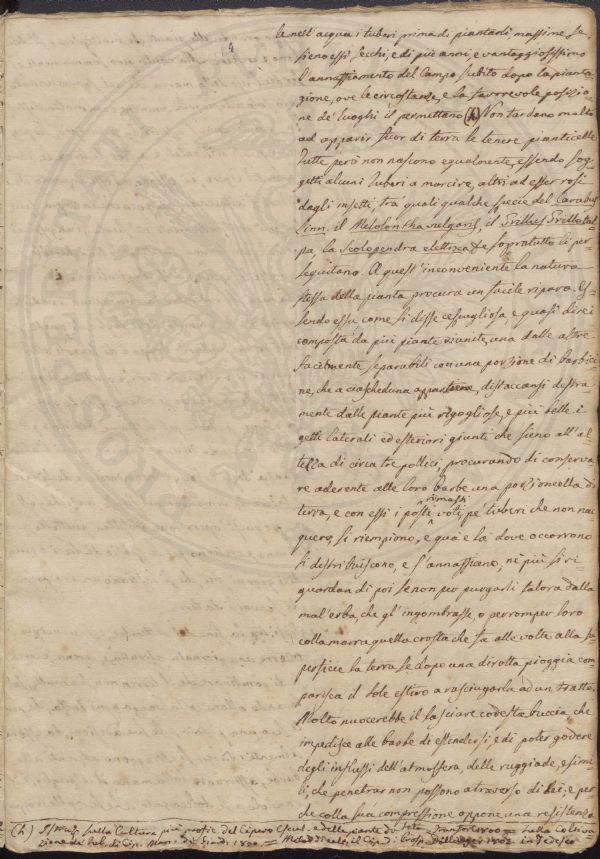 14
le nell'acqua i tuberi prima di piantarli, massime se
sieno essi secchi, e di più anni, e vantaggiosissimo
l'annaffiamento del Campo subito dopo la pianta-
gione, ove le circostanze, e la favorevole posizio-
ne de' luoghi il permettano (h) Non tardano molto
ad apparir fuor di terra le tenere pianticelle
tutte però non nascono egualmente, essendo sog-
getti alcuni tuberi a marcire, altri ad esser rosi
dagli insetti, tra' quali qualche specie del Carabus
Linn. il Melolontha vulgaris, il Grillus Grillotal-
pa, la Scolopendra elettrica &c sopratutto li per-
seguitano. A quest'inconveniente la natura
stessa della pianta procura un facile riparo. Es-
sendo essa, come si disse cespugliosa, e quasi direi
composta da più piante riunite, una dalle altre
facilmente separabili con una porzione di barbici-
ne, che a ciascheduna appartiene, distaccansi destra-
mente dalle piante più rigogliose, e più belle i
getti laterali ed esteriori giunti che sieno all'al-
tezza di circa tre pollici, procurando di conserva-
re aderente alle loro barbe una porzioncella di
terra, e con essi i posti rimasti voti pe' tuberi che non na-
quero, si riempiono, e quà e là dove occorrono
si distribuiscono, e s'annaffiano, nè più si ri-
guardan di poi se non per purgarli talora dalla
mal'erba, che gl'ingombrasse, o per romper loro
colla marra quella crosta che fa alle volte alla su-
perficie la terra, se dopo una dirotta pioggia com-
parisca il Sole estivo a rasciugarla ad un tratto.
Molto nuocerebbe il lasciare codesta buccia che
impedisce alle barbe di estendersi, e di poter godere
degli influssi dell'atmosfera, delle ruggiade, e simi-
li, che penetrar non possono atraverso di lei, e per-
che colla sua compressione oppone una resistenza
(h) sulla Cultura più profic. del Cipero Escul. e delle piante da Francfort 1800 = sulla Coltiva
zione da hab. di Cip. 1800 = Metodo di colt. il Cip. di 1802 in Tedesco